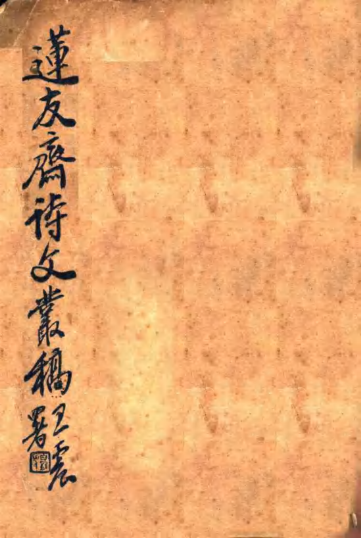 蓮友齋詩文叢稿
王震署